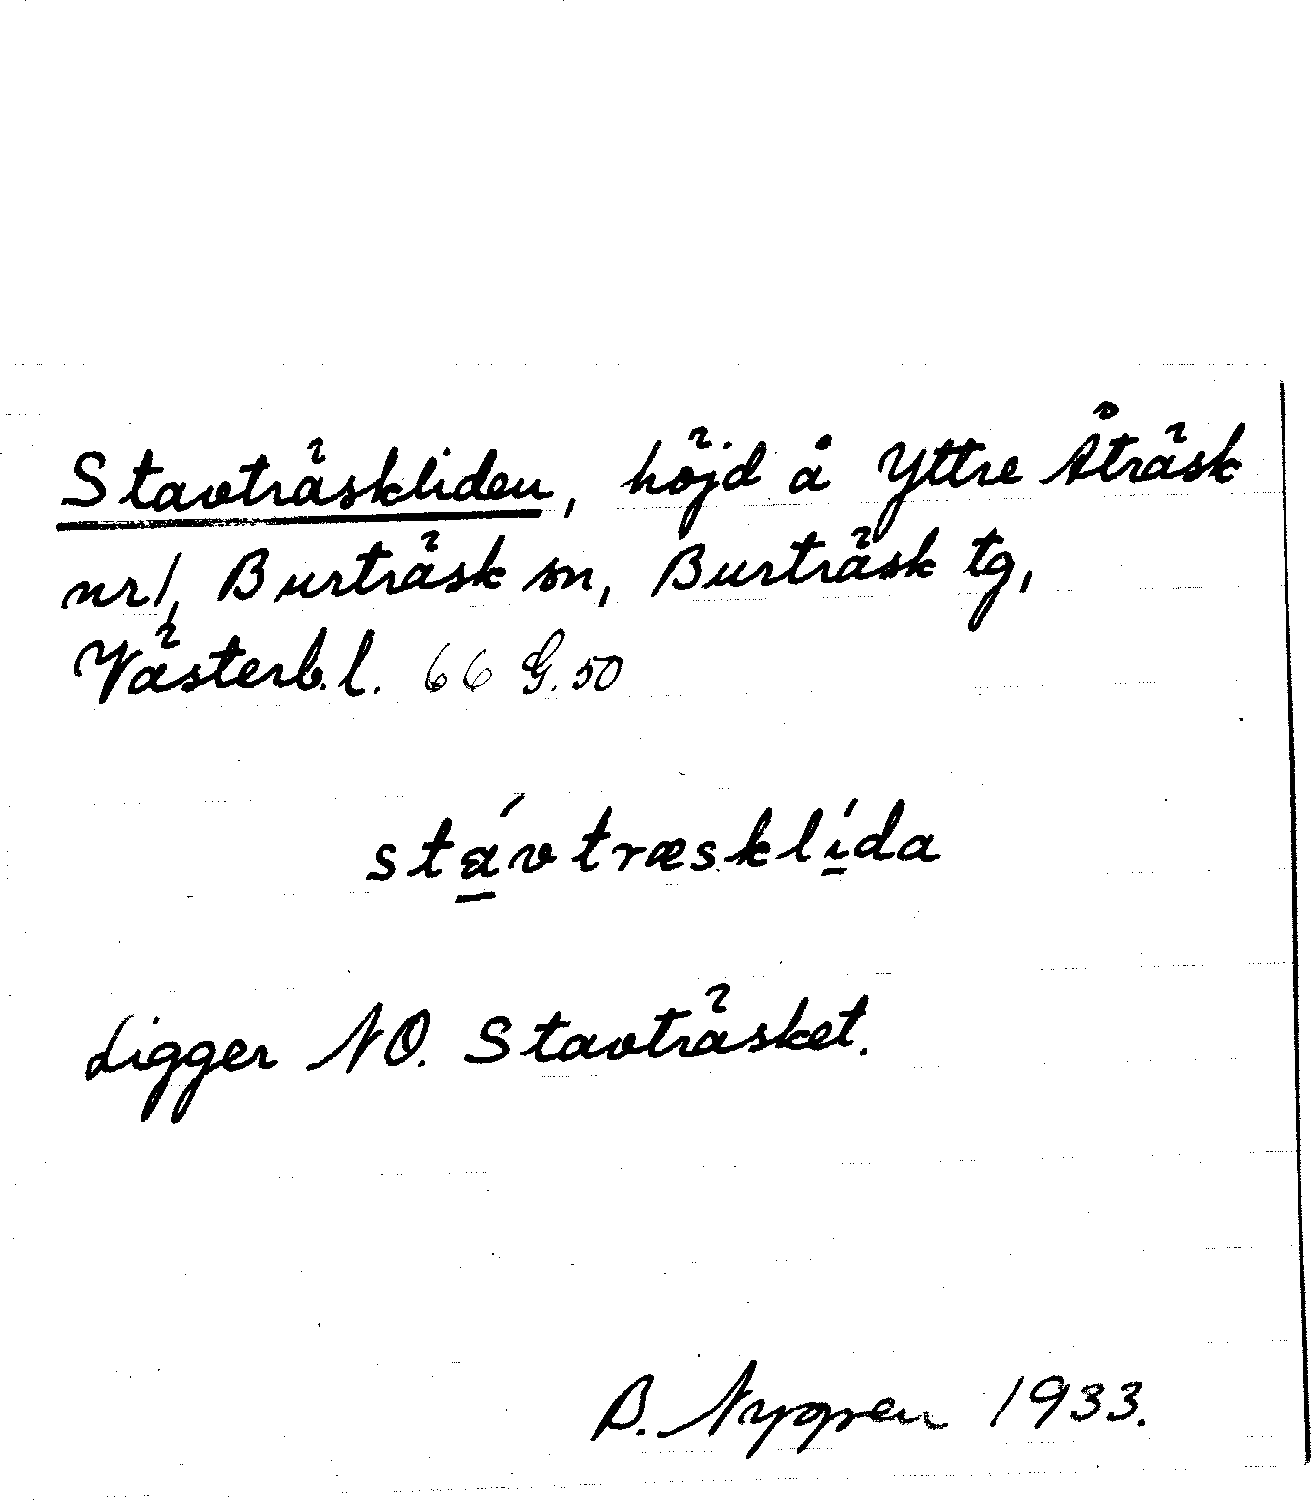 Stavträskliden, höjd å Yttre Åträsk
nr 1, Burträsk sn, Burträsk tg,
Västerb. l. 66 G. 50
stávtræsklída
Ligger NO. Stavträsket.
B. Nygren 1933.